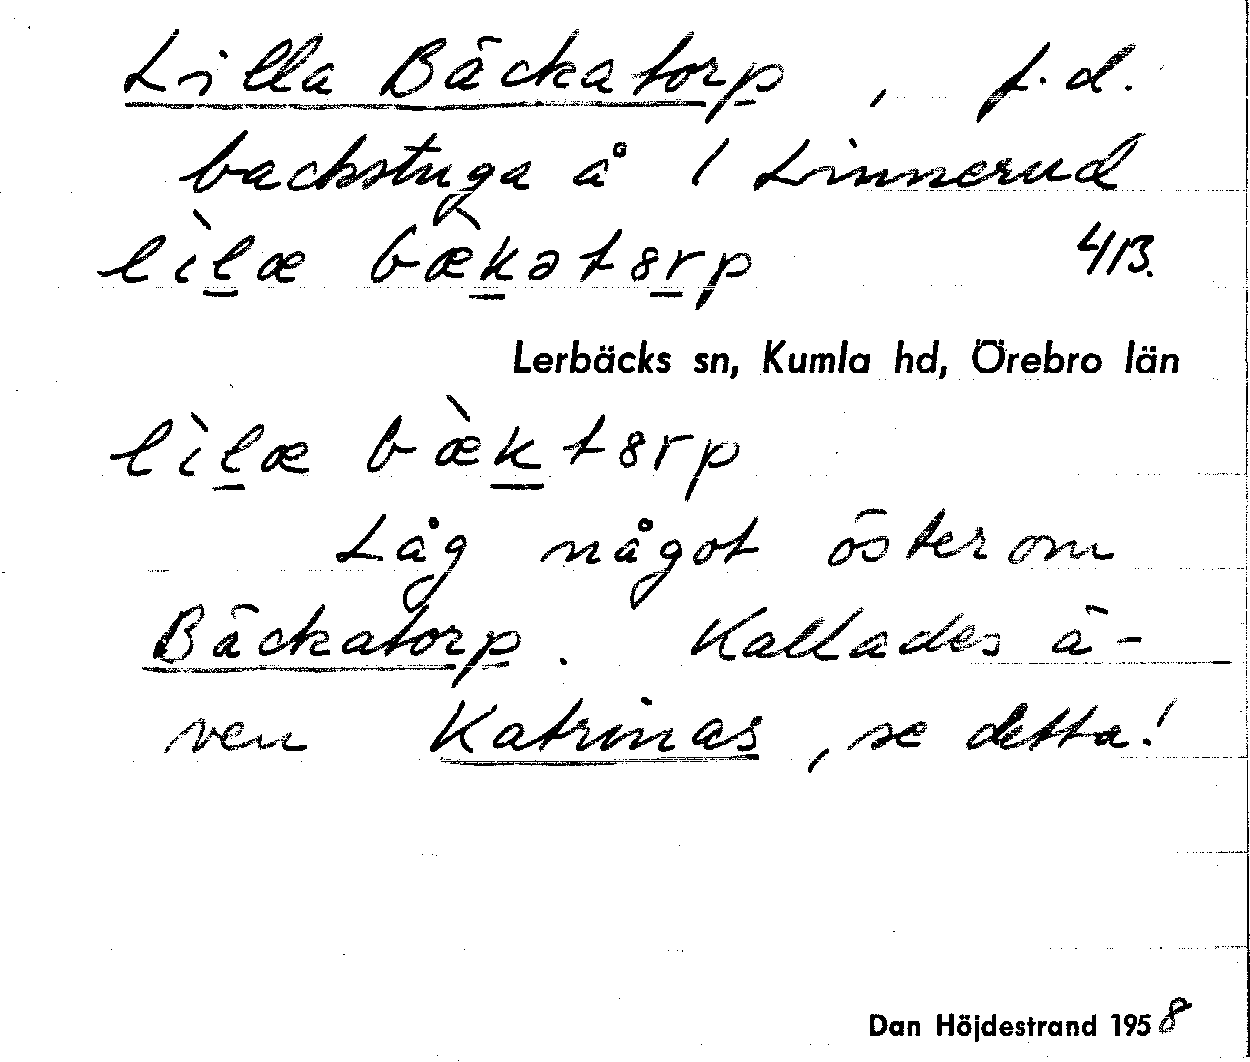 Lilla Bäckatorp, f.d.
backstuga å 1 Linnerud
lìlæ bæ̀kətȣrp 4/13.
Lerbäcks sn, Kumla hd, Örebro län
lìlæ bæ̀ktȣrp
Låg något österom
Bäckatorp. Kallades ä-
ven Katrinas, se detta!
Dan Höjdestrand 1958